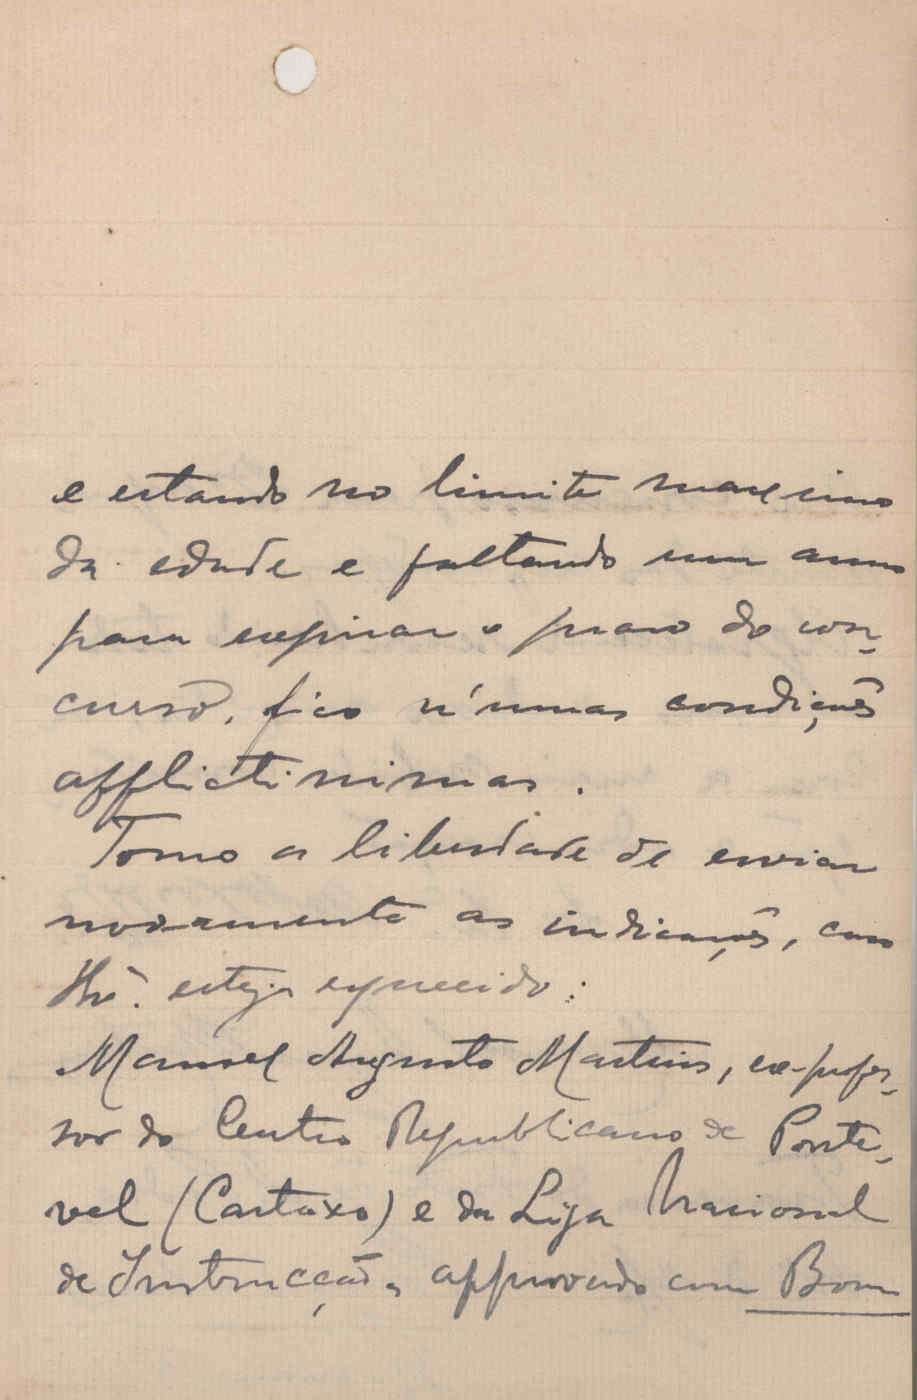 e estando no limite maximo
da edade e faltando um anno
para expirar o praso do con-
curso, fico n'umas condições
afflictissimas.
Tomo a liberdade de enviar
novamente as indicações, caso
Ex.ª esteja esquecido:
Manuel Augusto Martins, ex-profes-
sor do Centro Republicano de Ponte-
vel (Cartaxo) e da Liga Nacional
de Instrucção, approvado com Bom